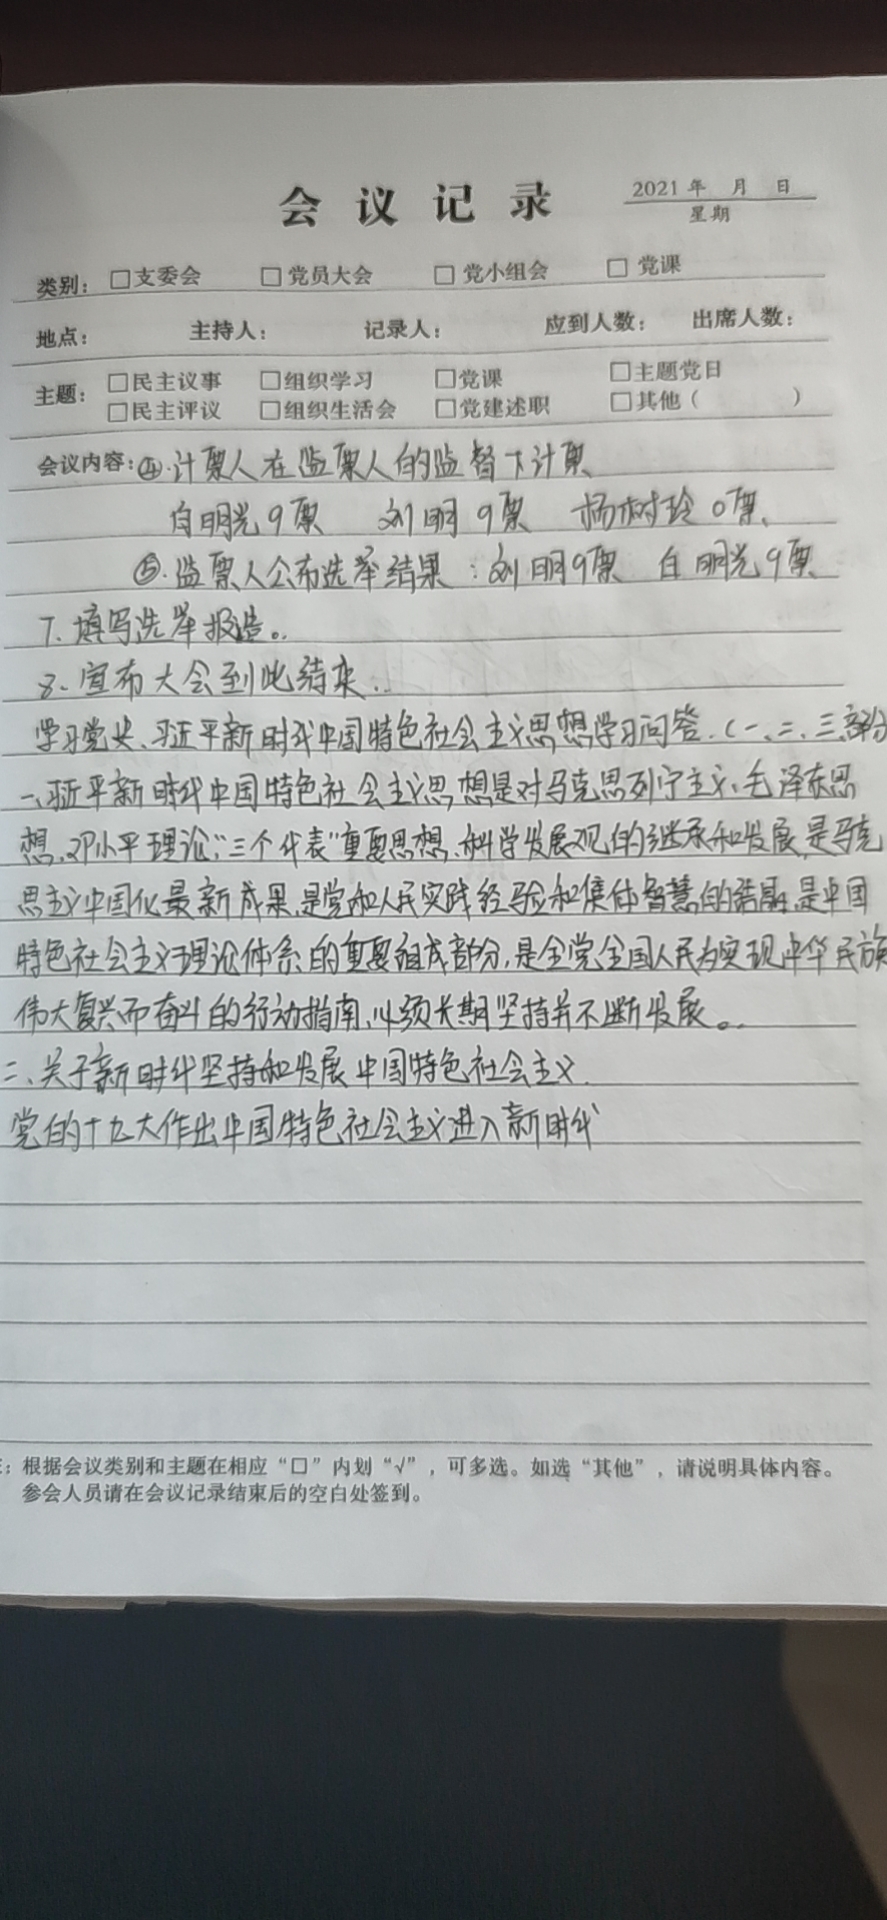 会议记录
2021年 月 日
星期
类别：□支委会 □党员大会 □党小组会 □党课
地点： 主持人： 记录人： 应到人数： 出席人数：
主题：□民主议事 □组织学习 □党课 □主题党日
□民主评议 □组织生活会 □党建述职 □其他（ ）
会议内容：④.计票人在监票人的监督下计票、
白明光9票 刘明9票 杨树玲0票、
⑤.监票人公布选举结果：刘明9票 白明光9票
7.填写选举报告。
8、宣布大会到此结束..
学习党史、习近平新时代中国特色社会主义思想学习问答.（一、二、三部分
一、习近平新时代中国特色社会主义思想是对马克思列宁主义、毛泽东思
想、邓小平理论，"三个代表"重要思想、科学发展观的继承和发展，是马克
思主义中国化最新成果，是党和人民实践经验和集体智慧的结晶，是中国
特色社会主义理论体系的重要组成部分，是全党全国人民为实现中华民族
伟大复兴而奋斗的行动指南，必须长期坚持并不断发展。
二、关于新时代坚持和发展中国特色社会主义.
党的十九大作出中国特色社会主义进入新时代
：根据会议类别和主题在相应“□”内划“√”，可多选。如选“其他”，请说明具体内容。
参会人员请在会议记录结束后的空白处签到。